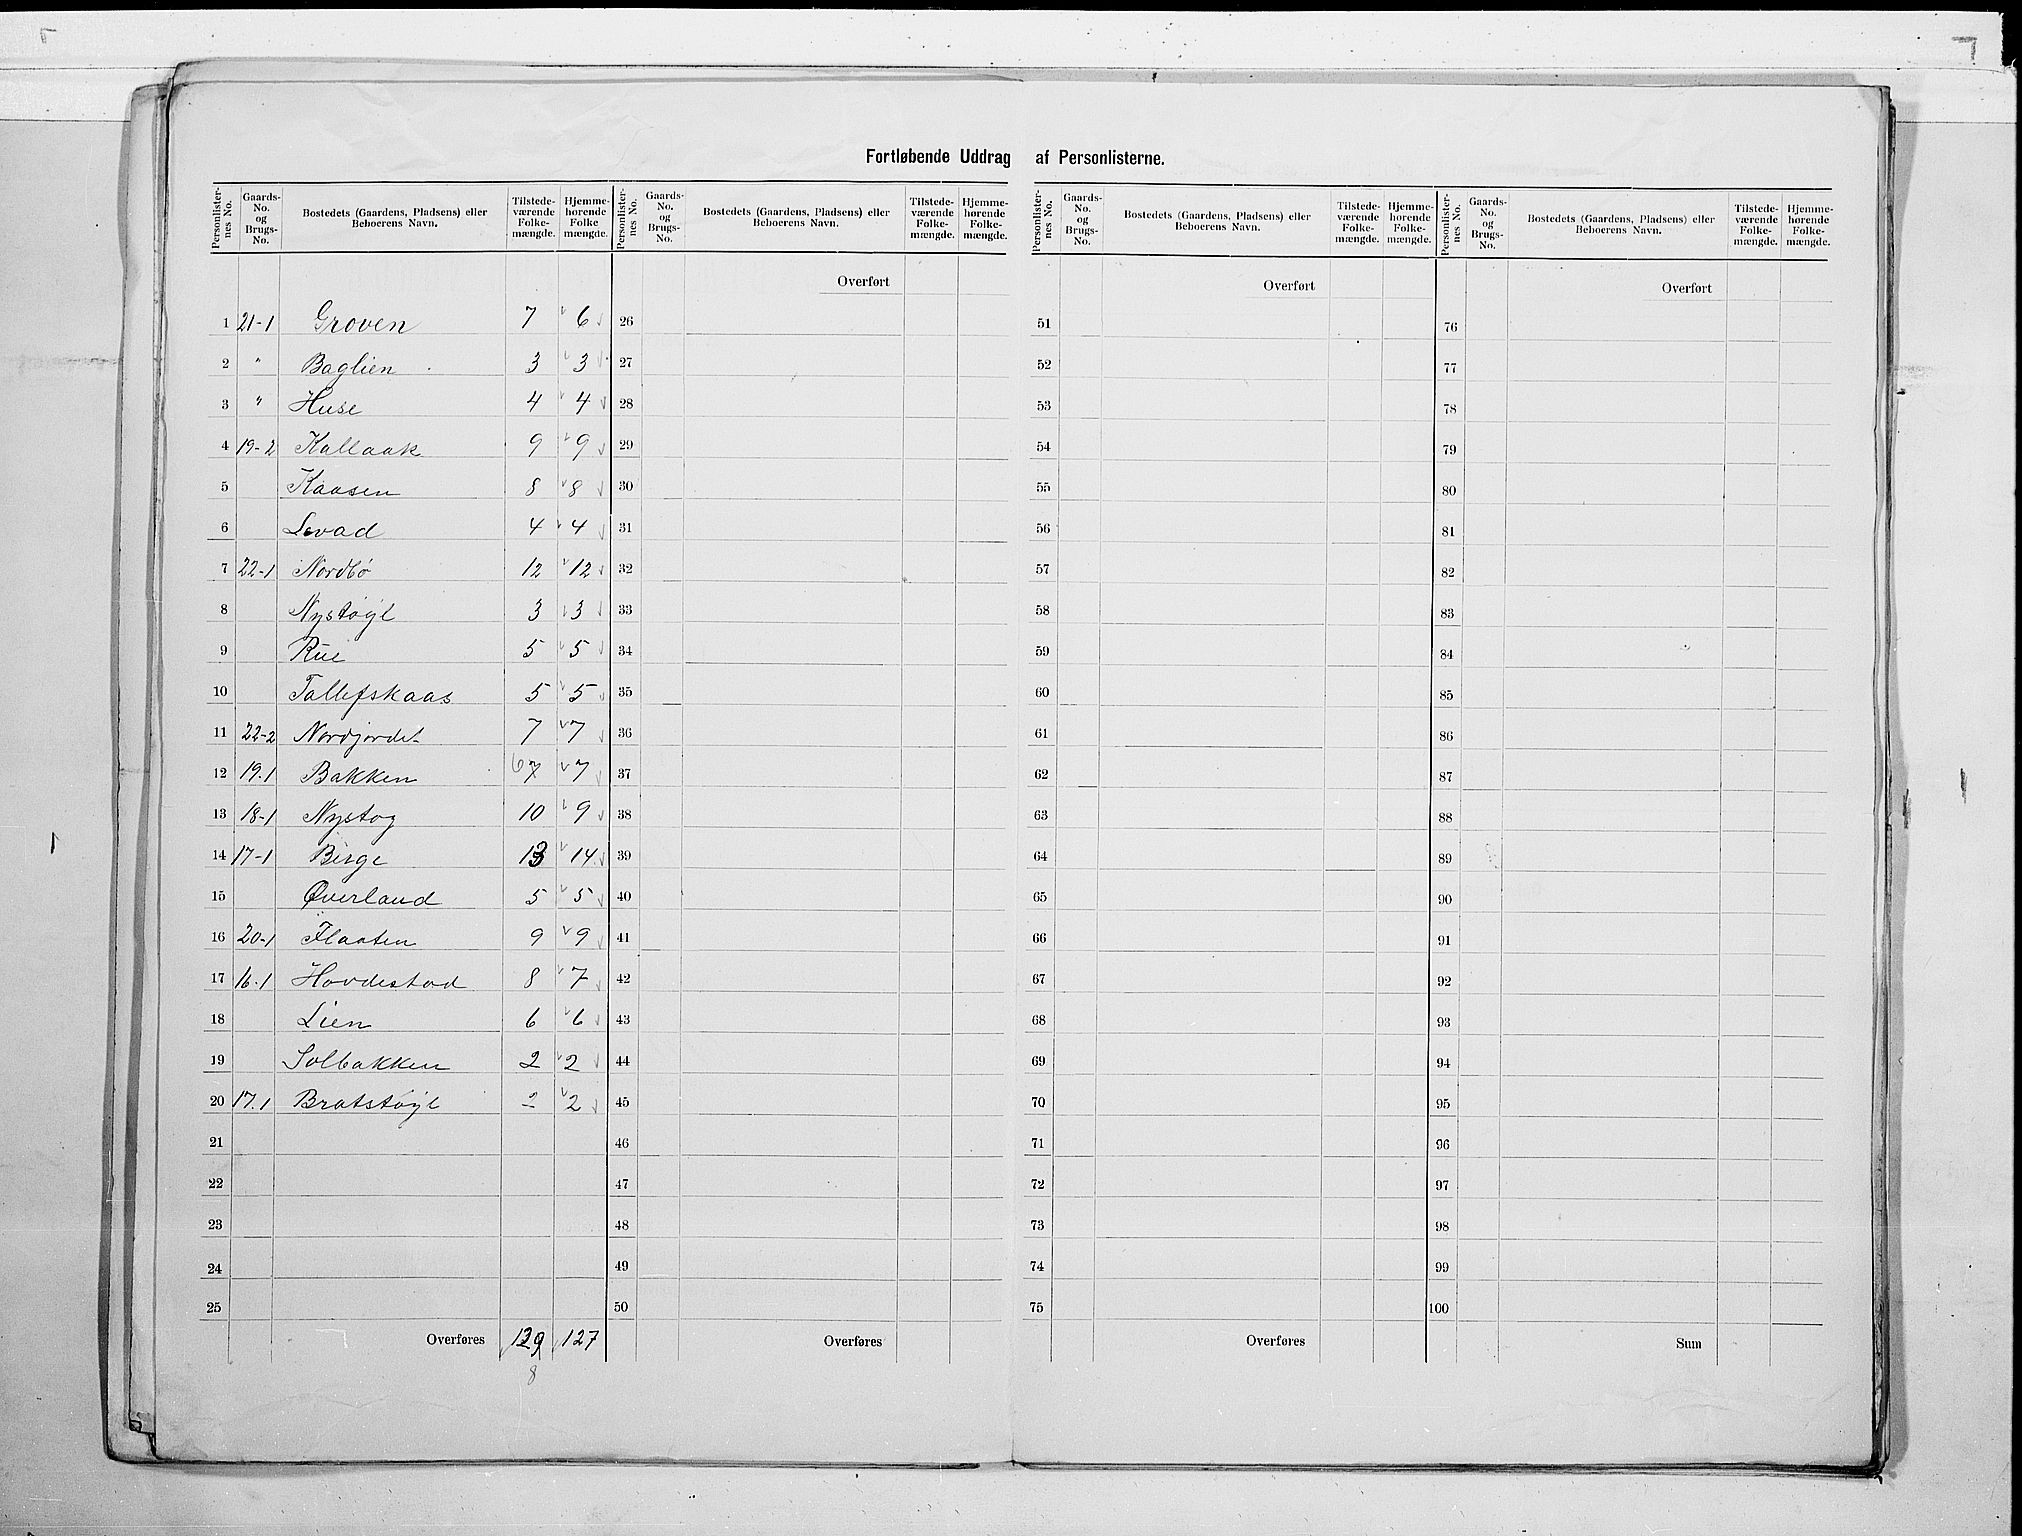 Fortløbende Uddrag af Personlisterne.
Personlister-nes No. | Gaards-No. og Brugs-No. | Bostedets (Gaardens, Pladsens) eller Beboerens Navn. | Tilstede-værende Folke-mængde. | Hjemme-hørende Folke mængde.
1 21-1 Groven 7 6
2 " Baglien 3 3
3 " Huse 4 4
4 19-2 Kallaak 9 9
5 Kaasen 8 8
6 Levad 4 4
7 22-1 Nordbø 12 12
8 Nystøyl 3 3
9 Rue 5 5
10 Tallefskaas 5 5
11 22-2 Nordjordet 7 7
12 19.1 Bakken 6 7 7
13 18-1 Nystog 10 9
14 17-1 Berge 13 14
15 Øverland 5 5
16 20-1 Flaaten 9 9
17 16.1 Hovdestad 8 7
18 Lien 6 6
19 Solbakken 2 2
20 17.1 Bratstøyl 2 2
21
22
23
24
25
Overføres 129 127
8
Personlister-nes No. | Gaards-No. og Brugs-No. | Bostedets (Gaardens, Pladsens) eller Beboerens Navn. | Tilstede-værende Folke-mængde. | Hjemme-hørende Folke-mængde.
Overført
26
27
28
29
30
31
32
33
34
35
36
37
38
39
40
41
42
43
44
45
46
47
48
49
50
Overføres
Personlister-nes No. | Gaards-No. og Brugs-No. | Bostedets (Gaardens, Pladsens) eller Beboerens Navn. | Tilstede-værende Folke-mængde. | Hjemme-hørende Folke-mængde.
Overført
51
52
53
54
55
56
57
58
59
60
61
62
63
64
65
66
67
68
69
70
71
72
73
74
75
Overføres
Personlister-nes No. | Gaards-No. og Brugs-No. | Bostedets (Gaardens, Pladsens) eller Beboerens Navn. | Tilstede-værende Folke-mængde. | Hjemme-hørende Folke-mængde.
Overført
76
77
78
79
80
81
82
83
84
85
86
87
88
89
90
91
92
93
94
95
96
97
98
99
100
Sum